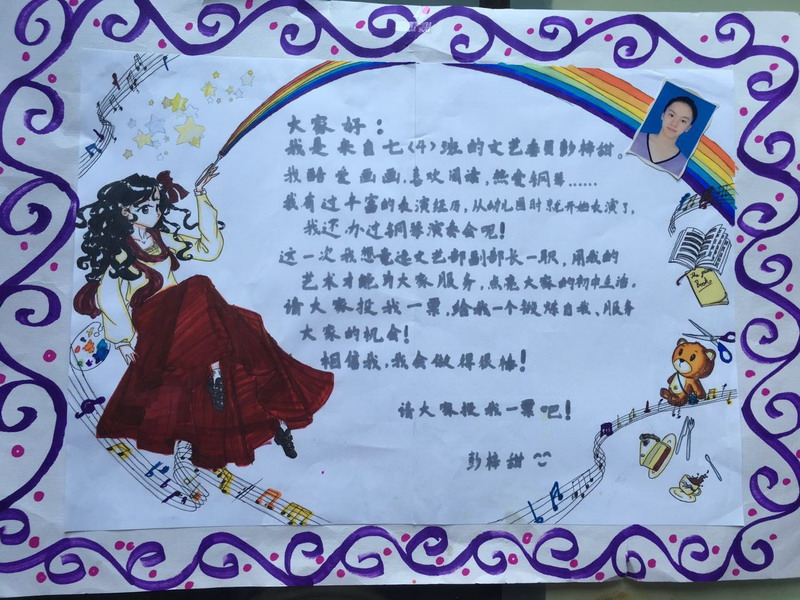 大家好：
我是来自七(4)班的文艺委员彭梓甜。
我酷爱画画,喜欢阅读,热爱钢琴……
我有过丰富的表演经历,从幼儿园时就开始表演了,
我还办过钢琴演奏会呢!
这一次我想竞选文艺部副部长一职,用我的
艺术才能为大家服务,点亮大家的初中生活。
请大家投我一票,给我一个锻炼自我、服务
大家的机会!
相信我,我会做得很棒!
请大家投我一票吧!
彭梓甜